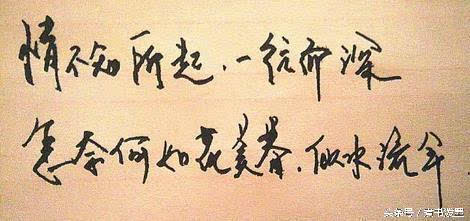 情不知所起.一往而深
怎奈何如花美眷.似水流年
头条号 /